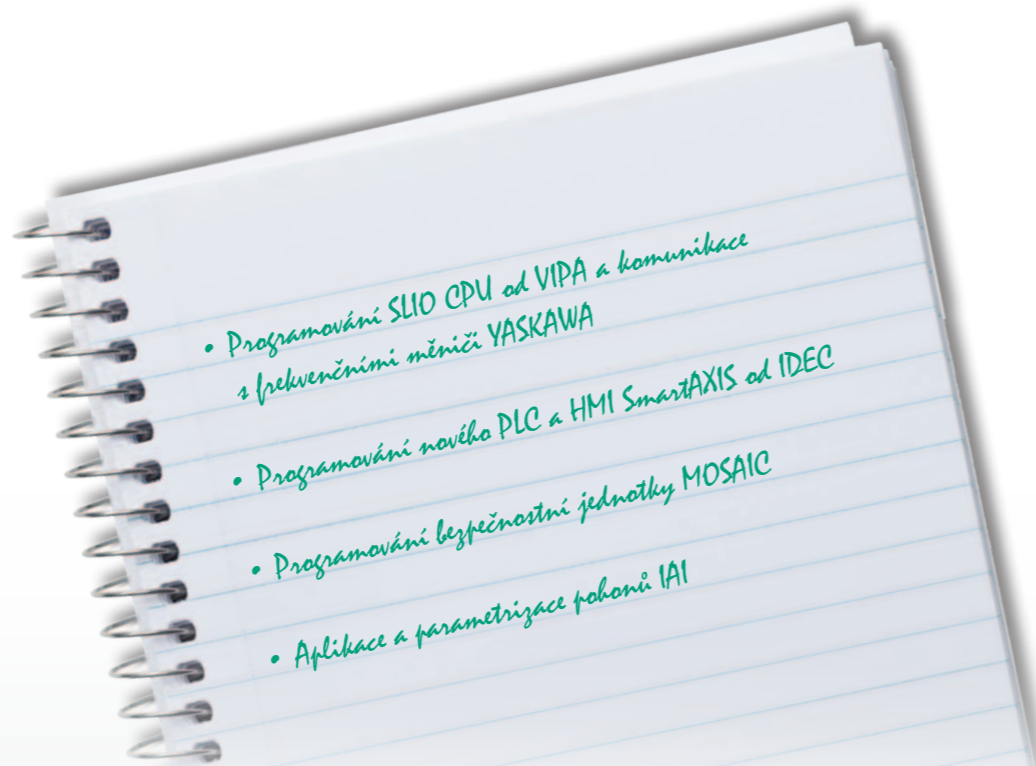 • Programování SLIO CPU od VIPA a komunikace
s frekvenčními měniči YASKAWA
• Programování nového PLC a HMI SmartAXIS od IDEC
• Programování bezpečnostní jednotky MOSAIC
• Aplikace a parametrizace pohonů IAI